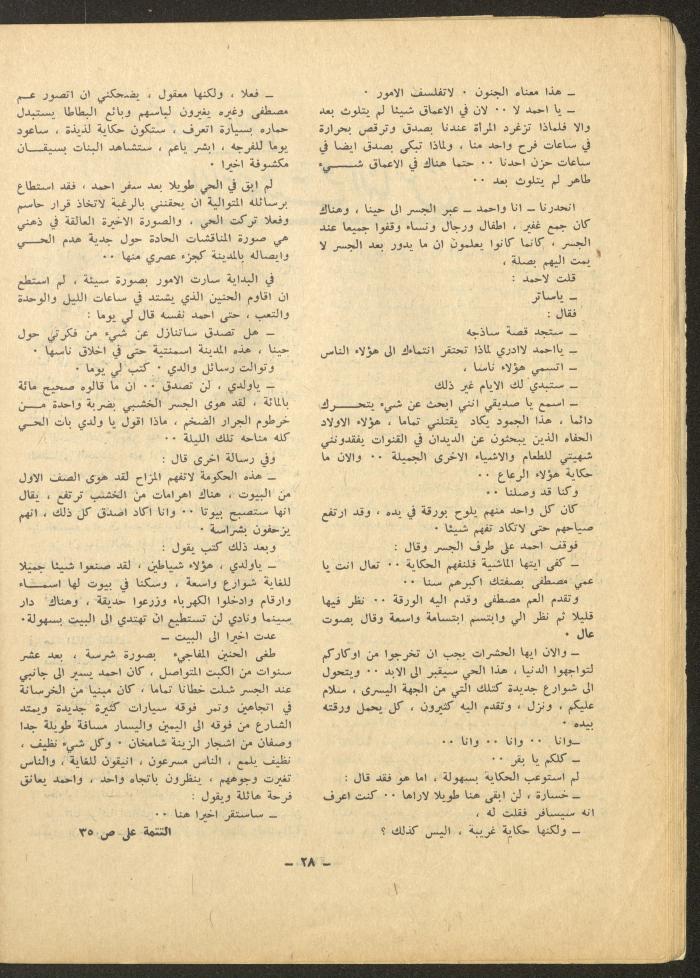 ـ هذا معناه الجنون ٠ لاتفلسف الامور ٠
ـ يا احمد لا ٠٠ لان في الاعماق شيئا لم يتلوث بعد
والا فلماذا تزغرد المرأة عندنا بصدق وترقص بحرارة
في ساعات فرح واحد منا ، ولماذا تبكي بصدق ايضا في
ساعات حزن احدنا ٠٠ حتما هناك في الاعماق شـــيء
طاهر لم يتلوث بعد ٠٠
انحدرنا ـ انا واحمد ـ عبر الجسر الى حينا ، وهناك
كان جمع غفير ، اطفال ورجال ونساء وقفوا جميعا عند
الجسر ، كانما كانوا يعلمون ان ما يدور بعد الجسر لا
يمت اليهم بصلة ،
قلت لاحمد :
ـ ياساتر
فقال :
ـ ستجد قصة ساذجه
ـ يااحمد لاادري لماذا تحتقر انتماءك الى هؤلاء الناس
ـ اتسمي هؤلاء ناسا ،
ـ ستبدي لك الايام غير ذلك
ـ اسمع يا صديقي انني ابحث عن شيء يتحــــرك
دائما ، هذا الجمود يكاد يقتلني تماما ، هؤلاء الاولاد
الحفاه الذين يبحثون عن الديدان في القنوات يفقدونني
شهيتي للطعام والاشياء الاخرى الجميلة ٠٠ والان ما
حكاية هؤلاء الرعاع ٠٠
وكنا قد وصلنا ٠٠
كان كل واحد منهم يلوح بورقة في يده ، وقد ارتفع
صياحهم حتى لاتكاد تفهم شيئا ٠
فوقف احمد على طرف الجسر وقال :
ـ كفى ايتها الماشية فلنفهم الحكاية ٠٠ تعال انت يا
عمي مصطفى بصفتك اكبرهم سنا ٠٠
وتقدم العم مصطفى وقدم اليه الورقة ٠٠ نظر فيها
قليلا ثم نظر الي وابتسم ابتسامة واسعة وقال بصوت
عال ٠
ـ والان ايها الحشرات يجب ان تخرجوا من اوكاركم
لتواجهوا الدنيا ، هذا الحي سيقبر الى الابد ٠٠ ويتحول
الى شوارع جديدة كتلك التي من الجهة اليسرى ، سلام
عليكم ، ونزل ، وتقدم اليه كثيرون ، كل يحمل ورقته
بيده ٠
ـ وانا ٠٠ وانا ٠٠ وانا ٠٠
ـ كلكم يا بقر ٠٠
لم استوعب الحكاية بسهولة ، اما هو فقد قال :
ـ خسارة ، لن ابقى هنا طويلا لاراها ٠٠ كنت اعرف
انه سيسافر فقلت له ،
ـ ولكنها حكاية غريبة ، اليس كذلك ؟
ـ فعلا ، ولكنها معقول ، يضحكني ان اتصور عـم
مصطفى وغيره يغيرون لباسهم وبائع البطاطا يستبدل
حماره بسيارة اتعرف ، ستكون حكاية لذيذة ، ساعود
يوما للفرجه ، ابشر ياعم ، ستشاهد البنات بسيقــان
مكشوفة اخيرا ٠
لم ابق في الحي طويلا بعد سفر احمد ، فقد استطاع
برسائله المتوالية ان يحقنني بالرغبة لاتخاذ قرار حاسم
وفعلا تركت الحي ، والصورة الاخيرة العالقة في ذهني
هي صورة المناقشات الحادة حول جدية هدم الحـــي
وايصاله بالمدينة كجزء عصري منها ٠٠
في البداية سارت الامور بصورة سيئة ، لم استطع
ان اقاوم الحنين الذي يشتد في ساعات الليل والوحدة
والتعب ، حتى احمد نفسه قال لي يوما :
ـ هل تصدق ساتنازل عن شيء من فكرتي حول
حينا ، هذه المدينة اسمنتية حتى في اخلاق ناسها ٠
وتوالت رسائل والدي ٠ كتب لي يوما ٠
ـ ياولدي ، لن تصدق ٠٠ ان ما قالوه صحيح مائة
بالمائة ، لقد هوى الجسر الخشبي بضربة واحدة مــن
خرطوم الجرار الضخم ، ماذا اقول يا ولدي بات الحـي
كله مناحه تلك الليلة ٠٠
وفي رسالة اخرى قال :
ـ هذه الحكومة لاتفهم المزاح لقد هوى الصف الاول
من البيوت ، هناك اهرامات من الخشب ترتفع ، يقال
انها ستصبح بيوتا ٠٠ وانا اكاد اصدق كل ذلك ، انهم
يزحفون بشراسة ٠
وبعد ذلك كتب يقول :
ـ ياولدي ، هؤلاء شياطين ، لقد صنعوا شيئا جميلا
للغاية شوارع واسعة ، وسكنا في بيوت لها اسمـــاء
وارقام وادخلوا الكهرباء وزرعوا حديقة ، وهناك دار
سينما ونادي لن تستطيع ان تهتدي الى البيت بسهولة٠
عدت اخيرا الى البيت ـ
طغى الحنين المفاجيء بصورة شرسة ، بعد عشر
سنوات من الكبت المتواصل ، كان احمد يسير الى جانبي
عند الجسر شلت خطانا تماما ، كان مبنيا من الخرسانة
في اتجاهين وتمر فوقه سيارات كثيرة جديدة ويمتد
الشارع من فوقه الى اليمين واليسار مسافة طويلة جدا
وصفان من اشجار الزينة شامخان ٠ وكل شيء نظيف ،
نظيف يلمع ، الناس مسرعون ، انيقون للغاية ، والناس
تغيرت وجوههم ، ينظرون باتجاه واحد ، واحمد يعانق
فرحة هائلة ويقول :
ـ ساستقر اخيرا هنا ٠٠
التتمة على ص ٣٥
ـ ٢٨ ـ